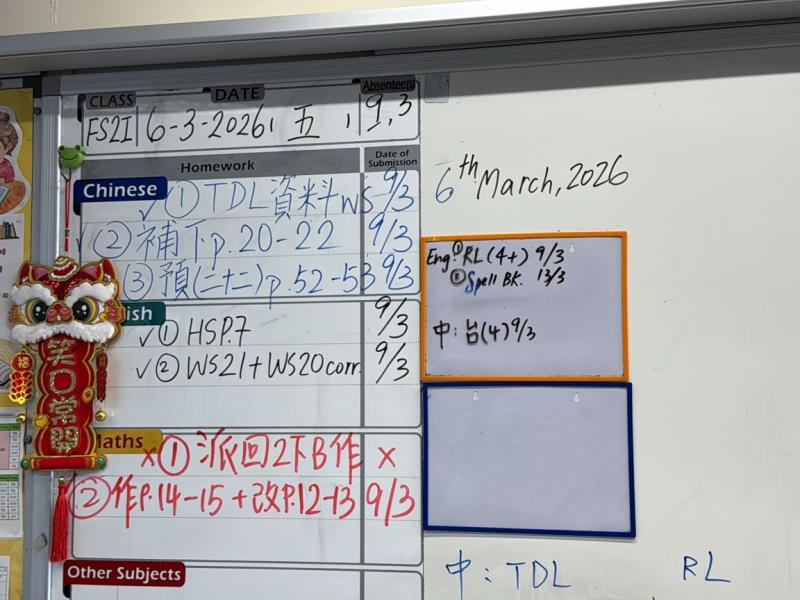 CLASS DATE Absentees
FS2I 6-3-2026, 五, 9, 3
Homework Date of Submission
Chinese ✓① TDL 資料WS 9/3
✓② 補下p.20-22 9/3
③ 預(二十二)p.52-53 9/3
ish ✓① HSP.7 9/3
✓② WS21+WS20corr. 9/3
Maths ×① 派回2下B作 ×
② 作P.14-15+改P.12-13 9/3
Other Subjects
笑口常開
福
6th March, 2026
Eng: ① RL(4+) 9/3
② Spell BK. 13/3
中: 台(4) 9/3
中: TDL RL